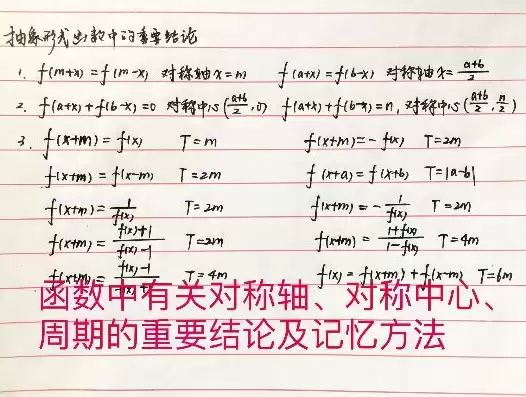 抽象形式函数中的重要结论
1. f(m+x)=f(m-x) 对称轴x=m f(a+x)=f(b-x) 对称轴x=\frac{a+b}{2}
2. f(a+x)+f(b-x)=0 对称中心(\frac{a+b}{2},0) f(a+x)+f(b-x)=n, 对称中心(\frac{a+b}{2},\frac{n}{2})
3. f(x+m)=f(x) T=m f(x+m)=-f(x) T=2m
f(x+m)=f(x-m) T=2m f(x+a)=f(x+b) T=|a-b|
f(x+m)=\frac{1}{f(x)} T=2m f(x+m)=-\frac{1}{f(x)} T=2m
f(x+m)=\frac{f(x)+1}{f(x)-1} T=2m f(x+m)=\frac{1+f(x)}{1-f(x)} T=4m
f(x+m)=\frac{f(x)-1}{f(x)+1} T=4m f(x)=f(x+m)+f(x-m) T=6m
函数中有关对称轴、对称中心、
周期的重要结论及记忆方法